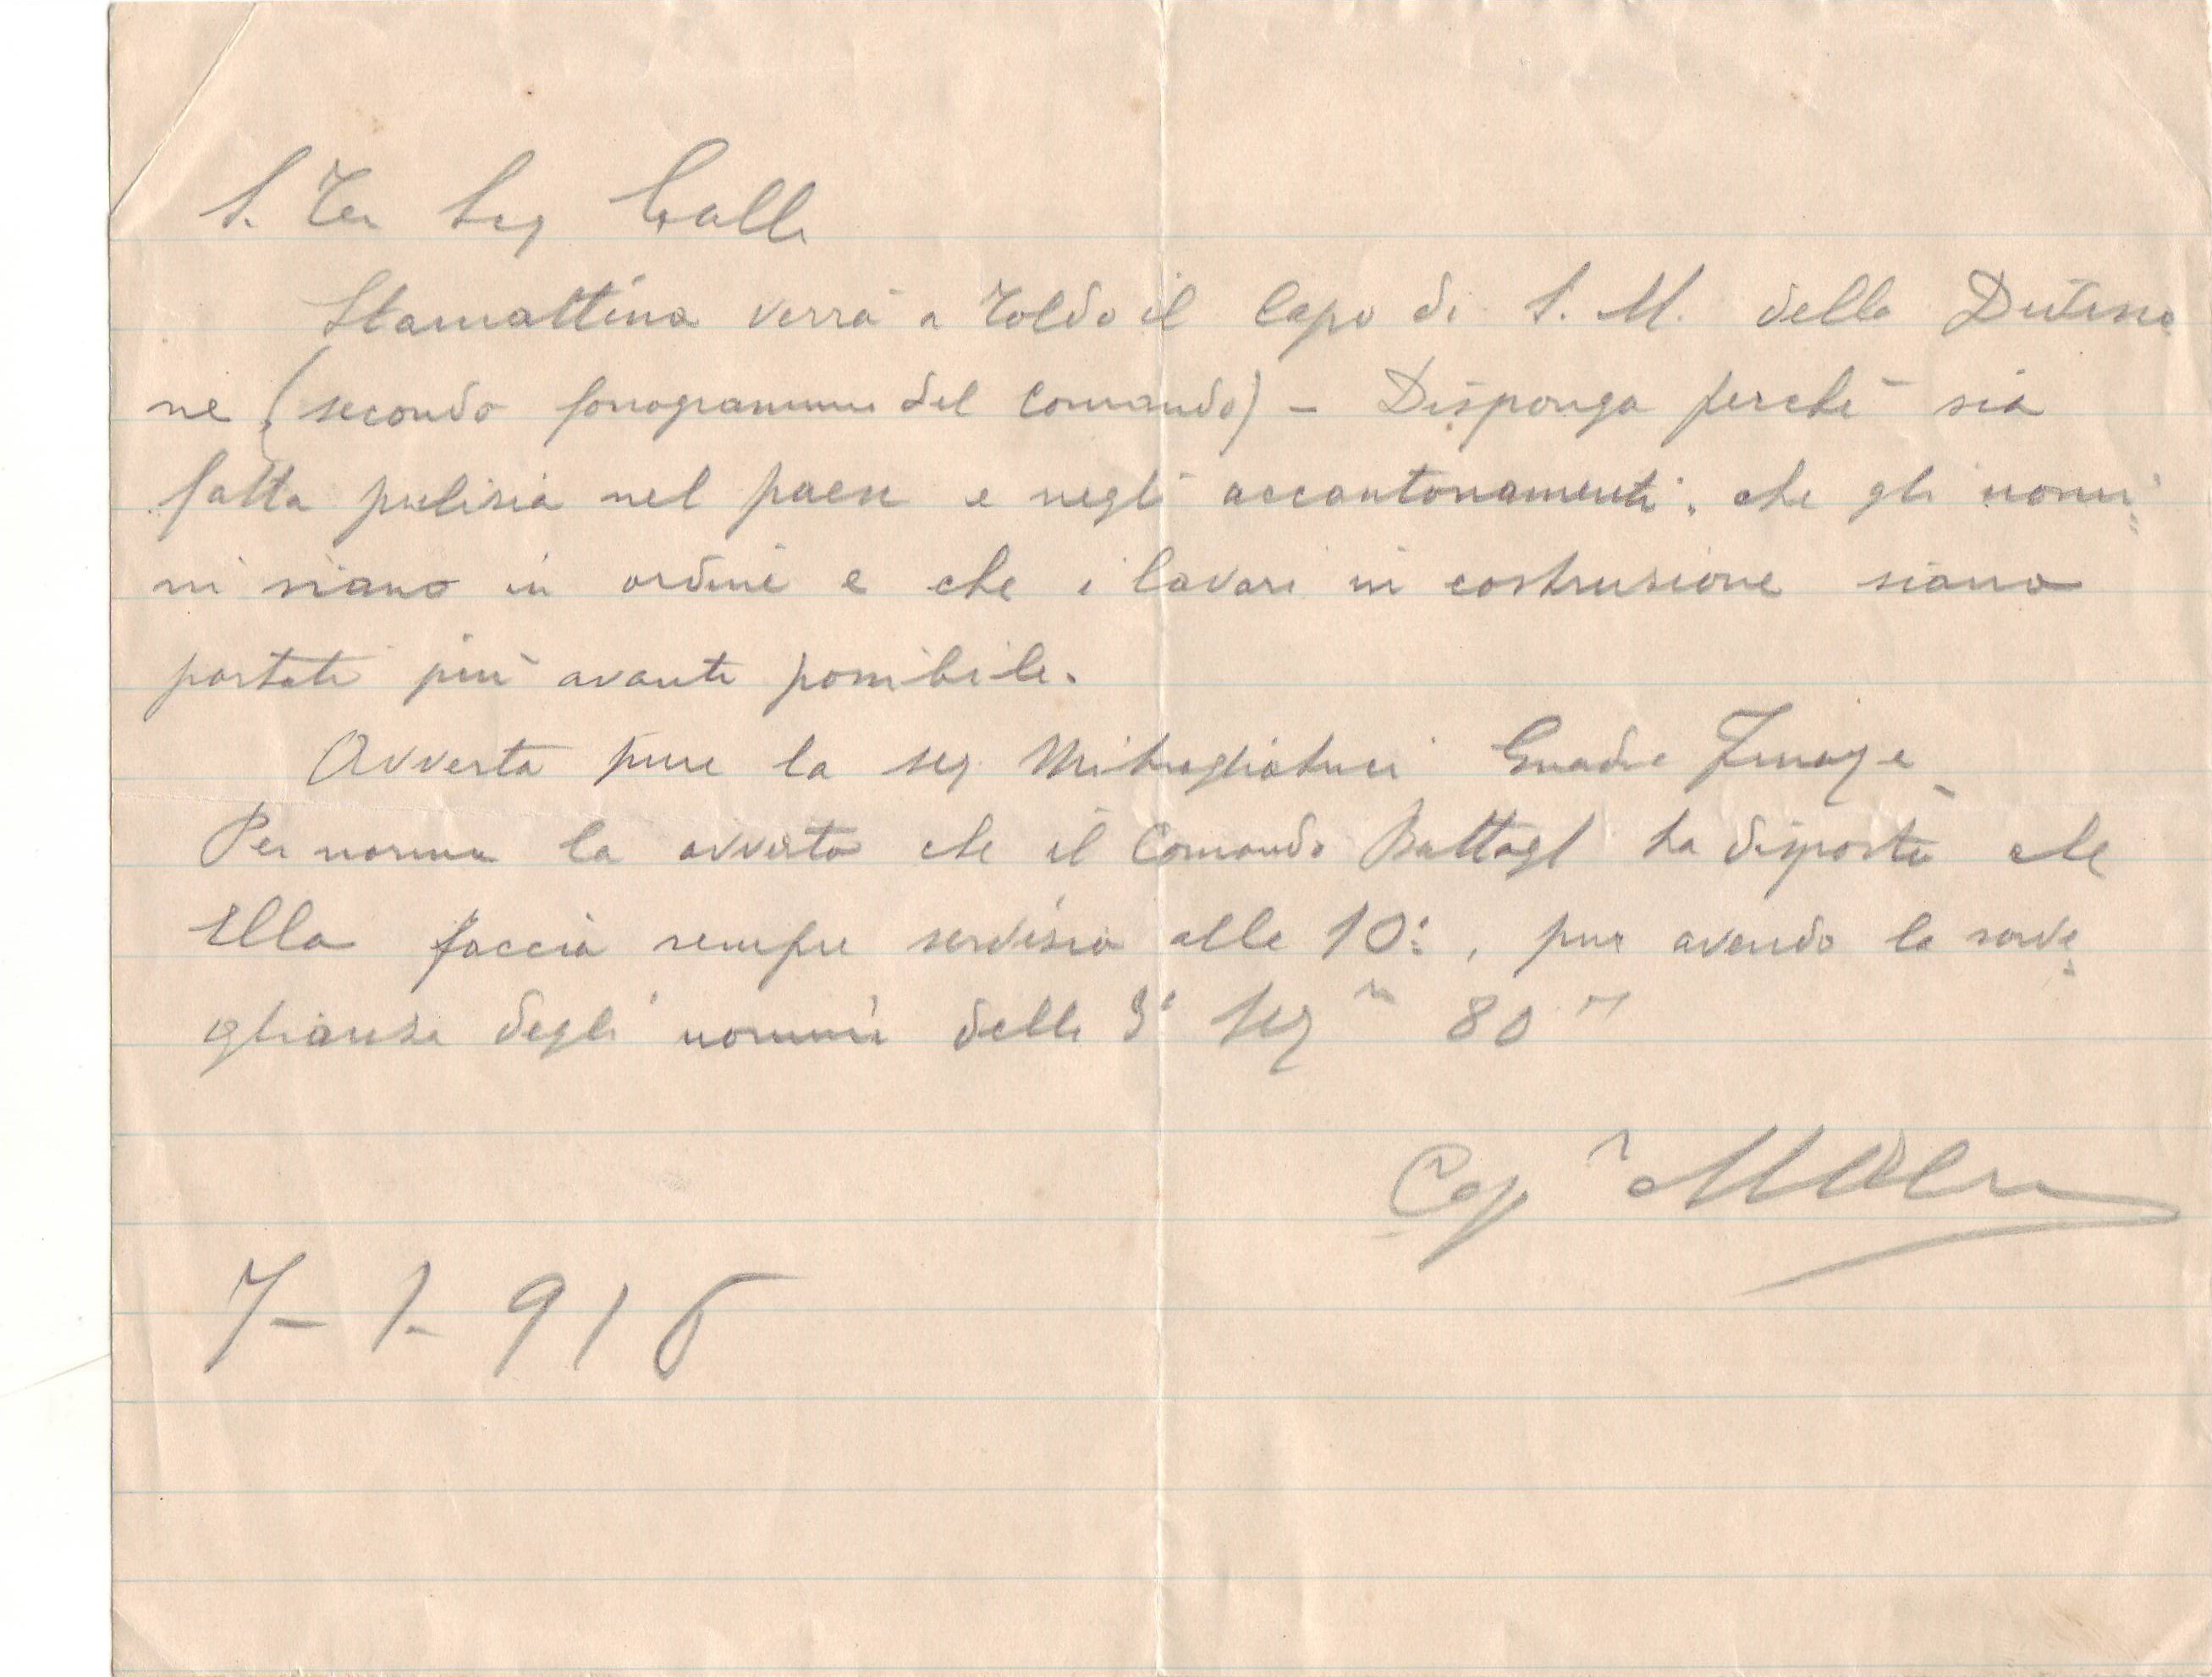 S. Ten Sig Galli
Stamattina verrà a Toldo il Capo di S. M. della Divisio
ne (secondo fonogramma del Comando) - Disponga perchè sia
fatta pulizia nel paese e negli accantonamenti, che gli uomi=
ni siano in ordine e che i lavori in costruzione siano
portati più avanti possibile.
Avverta pure la sez. Mitragliatrici Guardie
Per norma la avverto che il Comando Battagl ha disposto che
Ella faccia sempre servizio alla 10ª, pur avendo la sorve=
glianza degli uomini della 3ª Sez 80
Cap
7-1-916